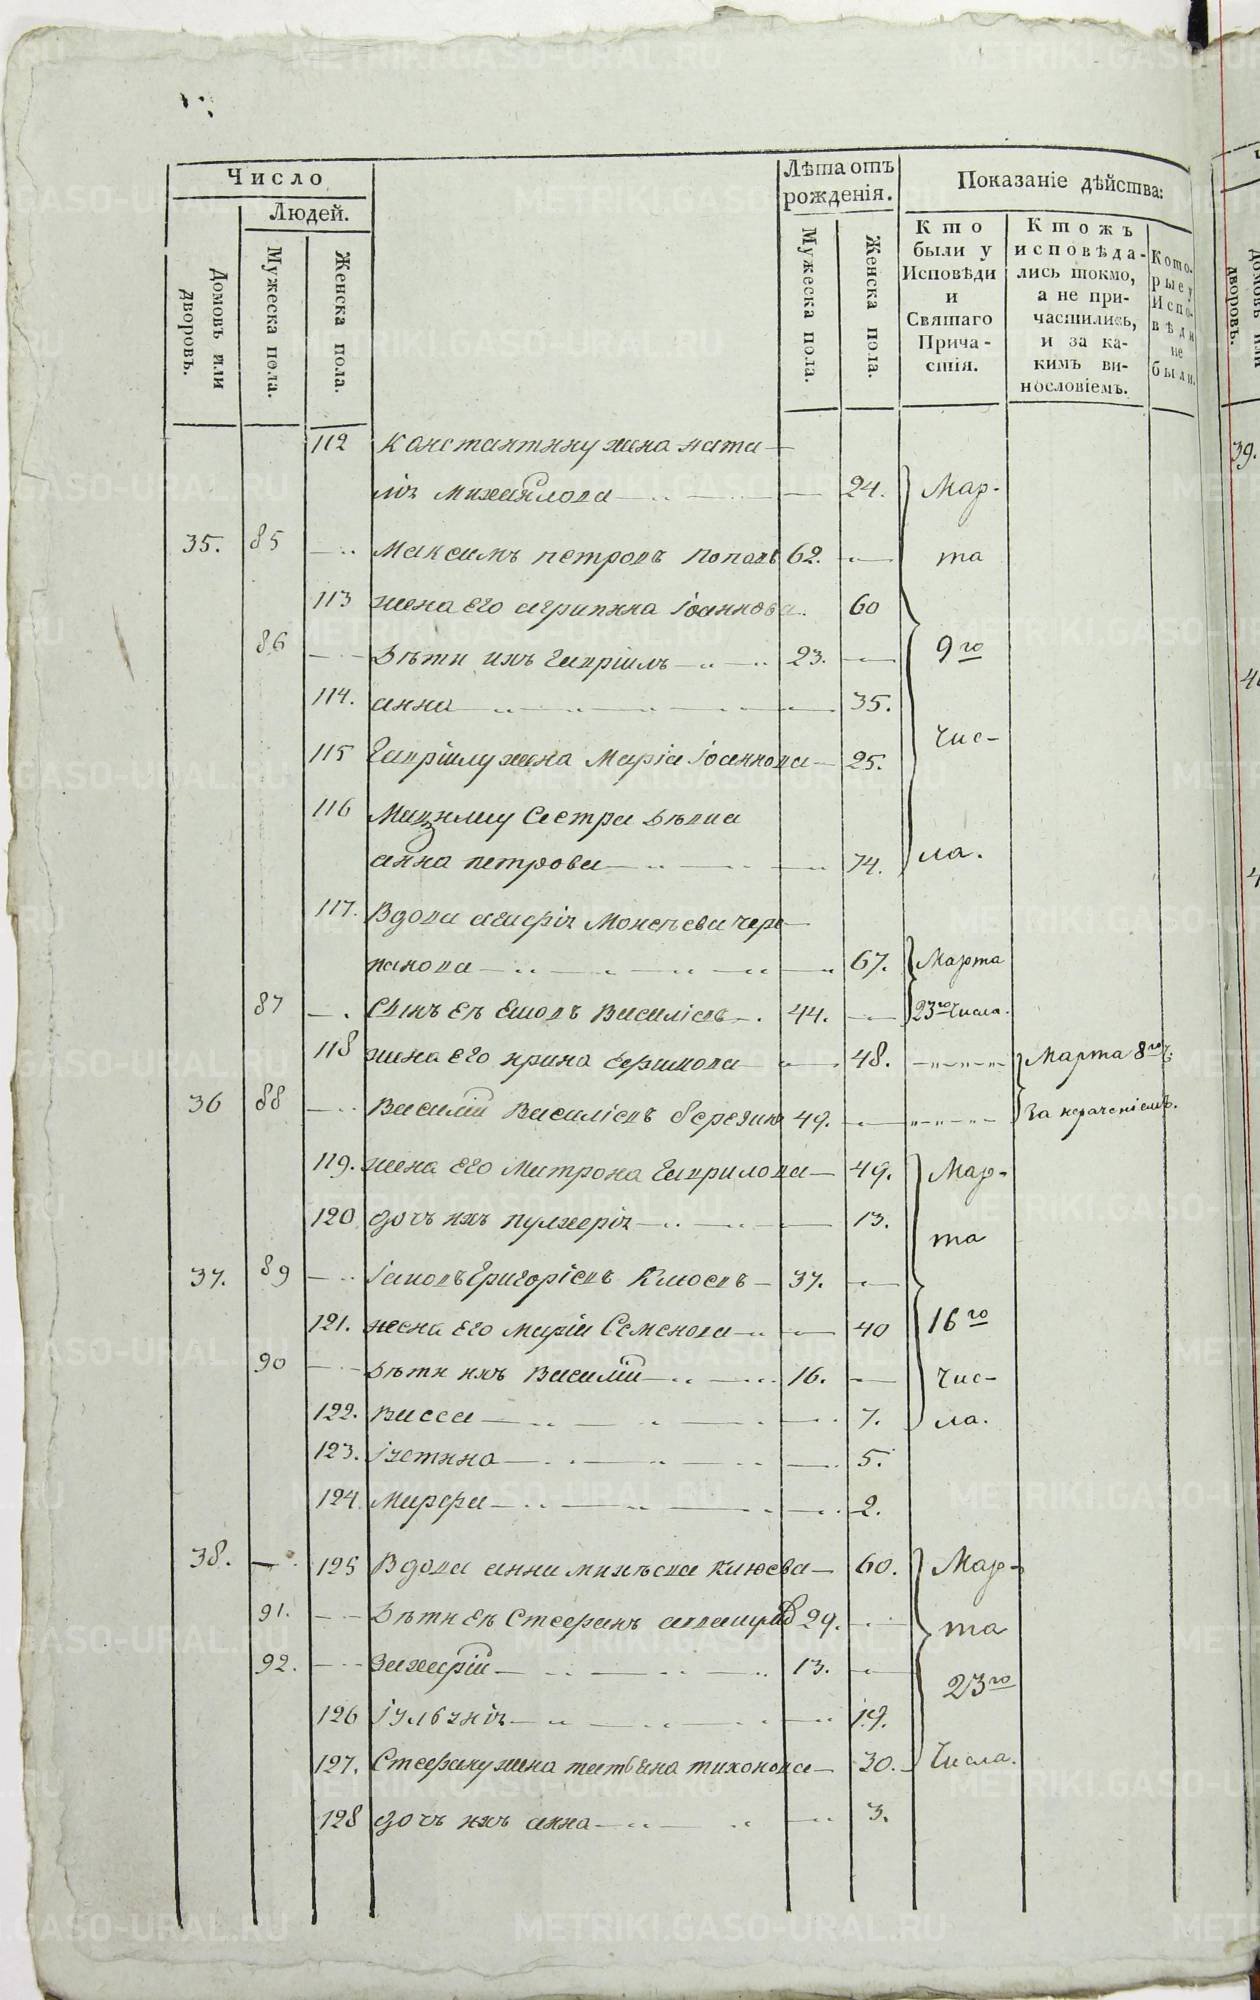 Число
Людей.
Домовъ или дворовъ.
Мужеска пола.
Женска пола.
Лѣта отъ рожденія.
Мужеска пола.
Женска пола.
Показаніе дѣйства:
Кто были у Исповѣди и Святаго Причастія.
Ктожъ исповѣдались токмо, а не причастились, и за какимъ винословіемъ.
Которые у Исповѣди не были.
112 Константину жена ната
лія Михайлова 24. Мар-
35. 85 Максимъ Петровъ Поповъ 62. та
113 жена его агрипина Іоаннова 60
86 дѣти ихъ Гавріилъ 23. 9го
114. анна 35.
115 Гавріилу жена Марія Іоаннова 25. чис-
116 Сестра дѣвка
анна петрова 74. ла.
117. Вдова Моисѣева чере
панова 67. Марта
87 Сынъ ея Василіевъ 44. 23го числа.
118 жена его ирина 48. Марта 8го ч.
36 88 Василій Василіевъ березинъ 49. За нераченіемъ.
119. жена его Матрона Гаврилова 49. Мар-
120 дочь ихъ пулхерія 13. та
37. 89 Іаковъ Григоріевъ Клюевъ 37.
121. жена его марія Семенова 40 16го
90 дѣти ихъ Василій 16. Чис-
122. Васса 7. ла.
123. Іустина 5.
124. Марфа 2.
38. 125 Вдова анна Клюева 60. Мар-
91. дѣти ея Стефанъ 29. та
92. Захарій 13. 23го
126 Іуліанія 19.
127. Стефану жена татьяна тихонова 30. Числа.
128 дочь ихъ анна 3.
39.
METRIKI.GASO-URAL.RU